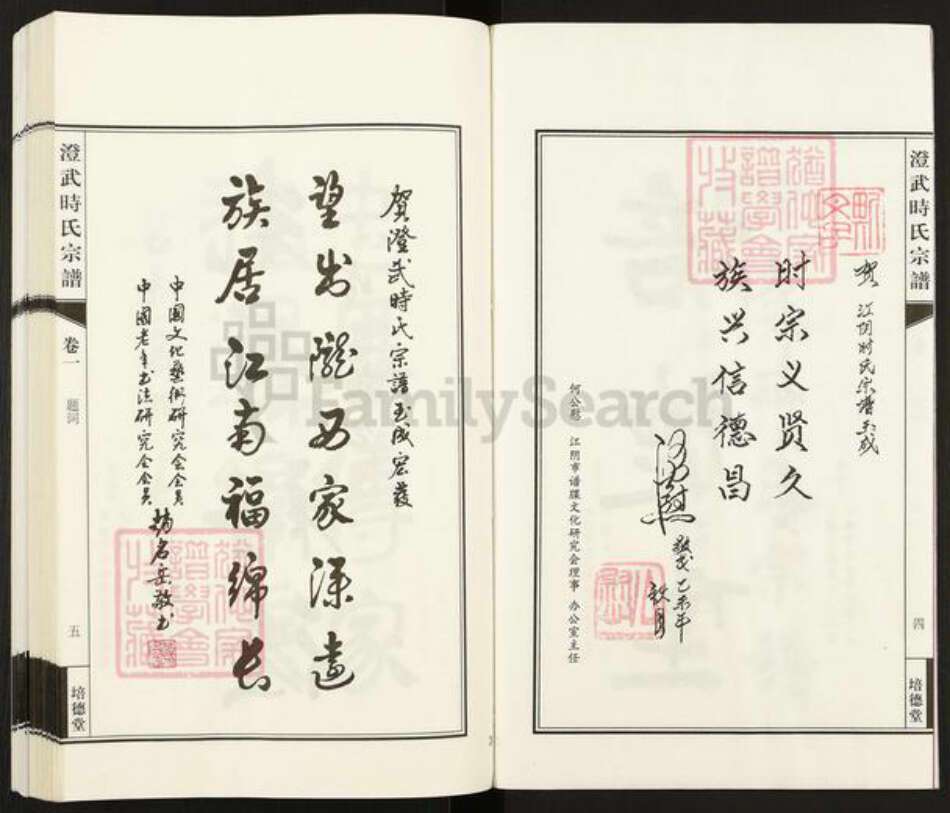 澄武時氏宗譜
四
培德堂
賀江阴时氏宗谱天成
时宗义贤久
族兴信德昌
乙未年
秋月
何公慰 江阴市谱牒文化研究会理事 办公室主任
賀澄武時氏宗譜玉成宏發
望出隴西家深遠
族居江南福綿長
中國文化藝術研究会会員
中國老年书法研究会会員
趙名岳敬书
澄武時氏宗譜
卷一
題词
五
培德堂
FamilySearch